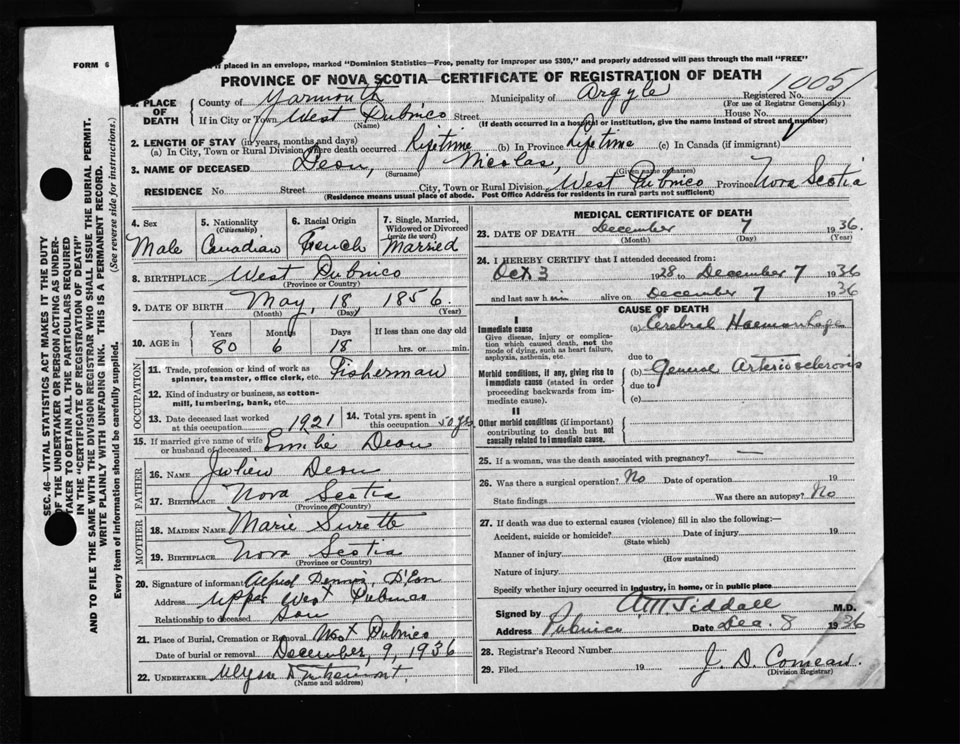 FORM 6
if placed in an envelope, marked "Dominion Statistics—Free, penalty for improper use $300," and properly addressed will pass through the mail "FREE"
PROVINCE OF NOVA SCOTIA—CERTIFICATE OF REGISTRATION OF DEATH
1005
1. PLACE OF DEATH
County of Yarmouth Municipality of Argyle Registered No.
(For use of Registrar General only)
If in City or Town West Pubnico Street House No.
(Name) (If death occurred in a hospital or institution, give the name instead of street and number)
2. LENGTH OF STAY (in years, months and days)
(a) In City, Town or Rural Division where death occurred Lifetime (b) In Province Lifetime (c) In Canada (if immigrant)
3. NAME OF DECEASED Deon, Nicolas,
(Surname) (Given name or names)
RESIDENCE No. Street City, Town or Rural Division West Pubnico Province Nova Scotia
(Residence means usual place of abode. Post Office Address for residents in rural parts not sufficient)
4. Sex Male
5. Nationality (Citizenship) Canadian
6. Racial Origin French
7. Single, Married, Widowed or Divorced (write the word) Married
8. BIRTHPLACE West Pubnico
(Province or Country)
9. DATE OF BIRTH May, 18 1856.
(Month) (Day) (Year)
10. AGE in Years Months Days If less than one day old
80 6 18 hrs. or min.
OCCUPATION
11. Trade, profession or kind of work as spinner, teamster, office clerk, etc. Fisherman
12. Kind of industry or business, as cotton-mill, lumbering, bank, etc.
13. Date deceased last worked at this occupation 1921
14. Total yrs. spent in this occupation 50 yrs
15. If married give name of wife or husband of deceased Emilie Deon
FATHER
16. NAME Julien Deon
17. BIRTHPLACE Nova Scotia
(Province or Country)
MOTHER
18. MAIDEN NAME Marie Surette
19. BIRTHPLACE Nova Scotia
(Province or Country)
20. Signature of informant Alfred Dennis, D'Eon
Address Upper West Pubnico
Relationship to deceased Son
21. Place of Burial, Cremation or Removal West Pubnico
Date of burial or removal December, 9, 1936
22. UNDERTAKER Ulysse
(Name and address)
MEDICAL CERTIFICATE OF DEATH
23. DATE OF DEATH December 7 1936
(Month) (Day) (Year)
24. I HEREBY CERTIFY that I attended deceased from:
Oct 3 1928 to December 7 1936
and last saw him alive on December 7 1936
CAUSE OF DEATH
I
Immediate cause
Give disease, injury or complication which caused death, not the mode of dying, such as heart failure, asphyxia, asthenia, etc.
(a) Cerebral Haemorrhage
due to
Morbid conditions, if any, giving rise to immediate cause (stated in order proceeding backwards from immediate cause).
(b) General Arteriosclerosis
due to
(c)
II
Other morbid conditions (if important) contributing to death but not causally related to immediate cause.
25. If a woman, was the death associated with pregnancy? —
26. Was there a surgical operation? No Date of operation 19
State findings Was there an autopsy? No
27. If death was due to external causes (violence) fill in also the following:—
Accident, suicide or homicide? Date of injury 19
(State which)
Manner of injury
(How sustained)
Nature of injury
Specify whether injury occurred in industry, in home, or in public place
Signed by A.M. Siddall M.D.
Address Pubnico Date Dec. 8 1936
28. Registrar's Record Number
29. Filed 19 J. D. Comeau.
(Division Registrar)
SEC. 46—VITAL STATISTICS ACT MAKES IT THE DUTY
OF THE UNDERTAKER OR PERSON ACTING AS UNDER-
TAKER TO OBTAIN ALL THE PARTICULARS REQUIRED
IN THE "CERTIFICATE OF REGISTRATION OF DEATH"
AND TO FILE THE SAME WITH THE DIVISION REGISTRAR WHO SHALL ISSUE THE BURIAL PERMIT.
WRITE PLAINLY WITH UNFADING INK. THIS IS A PERMANENT RECORD.
Every item of information should be carefully supplied. (See reverse side for instructions.)